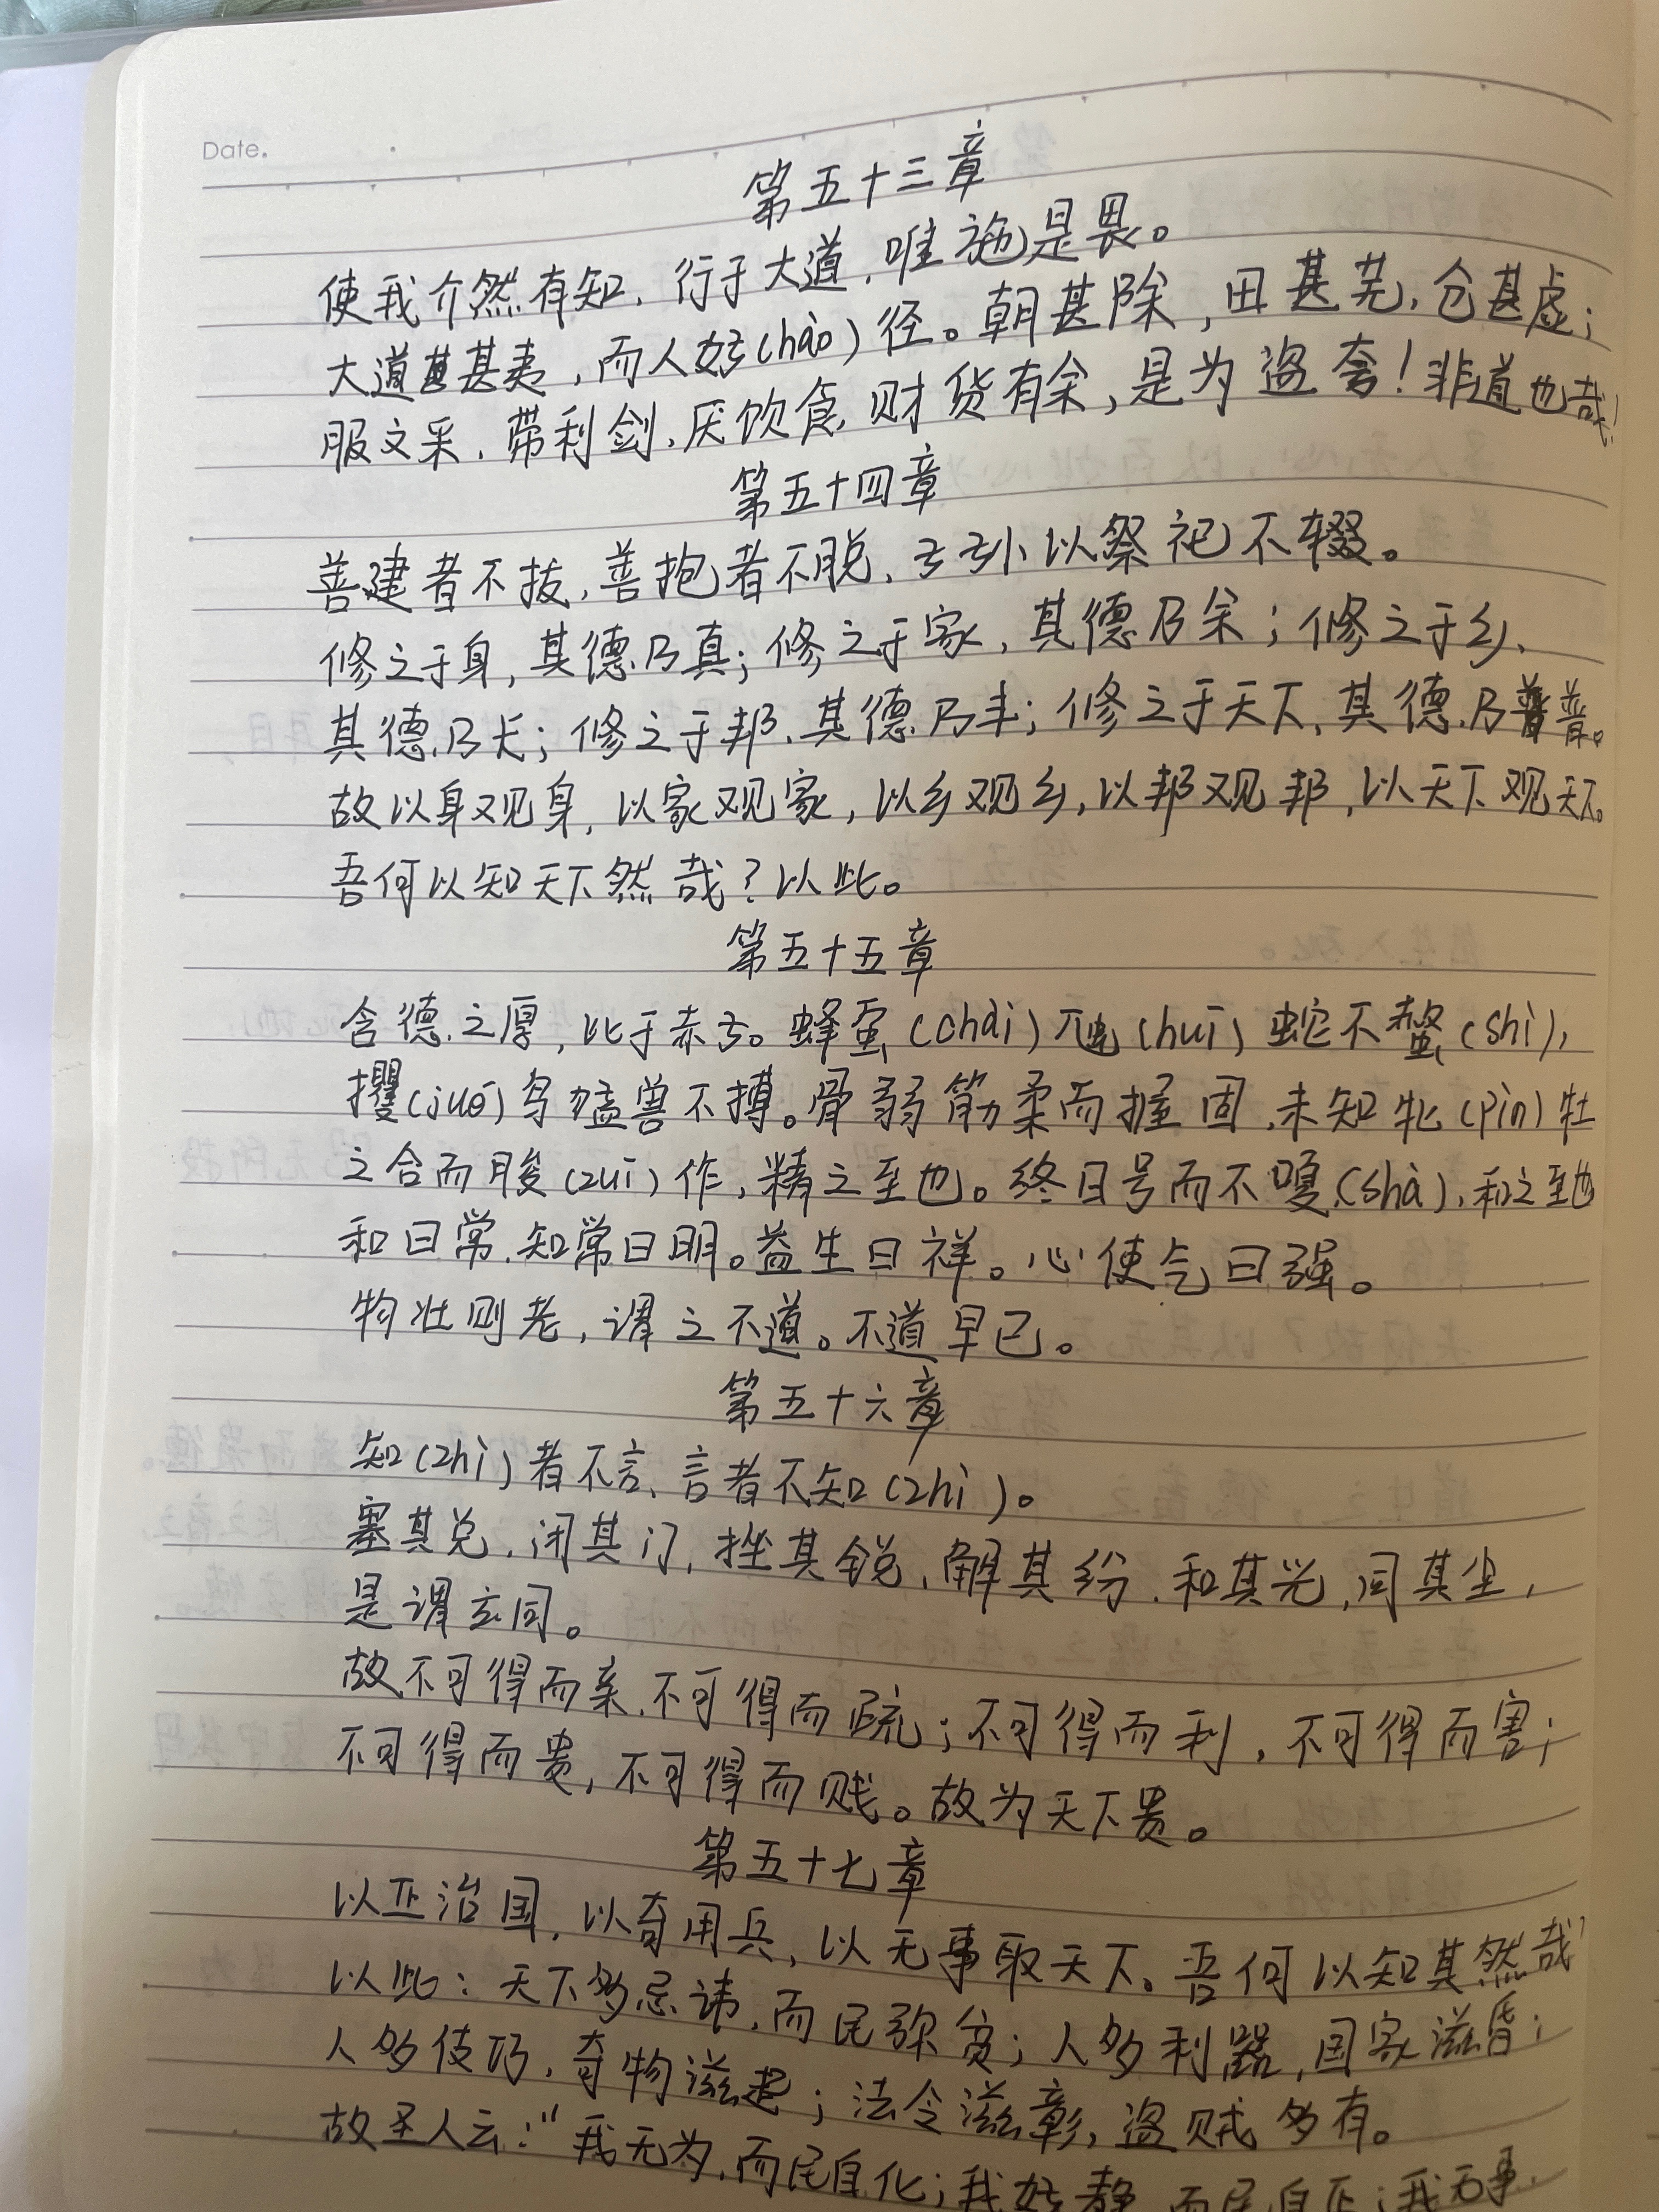 Date.
第五十三章
使我介然有知，行于大道，唯施是畏。
大道甚夷，而人好(hào)径。朝甚除，田甚芜，仓甚虚；
服文采，带利剑，厌饮食，财货有余，是为盗夸！非道也哉！
第五十四章
善建者不拔，善抱者不脱，子孙以祭祀不辍。
修之于身，其德乃真；修之于家，其德乃余；修之于乡，
其德乃长；修之于邦，其德乃丰；修之于天下，其德乃普。
故以身观身，以家观家，以乡观乡，以邦观邦，以天下观天下。
吾何以知天下然哉？以此。
第五十五章
含德之厚，比于赤子。蜂虿(chài)虺(huǐ)蛇不螫(shì)，
攫(jué)鸟猛兽不搏。骨弱筋柔而握固，未知牝(pìn)牡
之合而朘(zuī)作，精之至也。终日号而不嗄(shà)，和之至也
和曰常，知常曰明。益生曰祥。心使气曰强。
物壮则老，谓之不道。不道早已。
第五十六章
知(zhì)者不言，言者不知(zhì)。
塞其兑，闭其门，挫其锐，解其纷，和其光，同其尘，
是谓玄同。
故不可得而亲，不可得而疏；不可得而利，不可得而害；
不可得而贵，不可得而贱。故为天下贵。
第五十七章
以正治国，以奇用兵，以无事取天下。吾何以知其然哉？
以此：天下多忌讳，而民弥贫；人多利器，国家滋昏；
人多伎巧，奇物滋起；法令滋彰，盗贼多有。
故圣人云：“我无为，而民自化；我好静，而民自正；我无事，